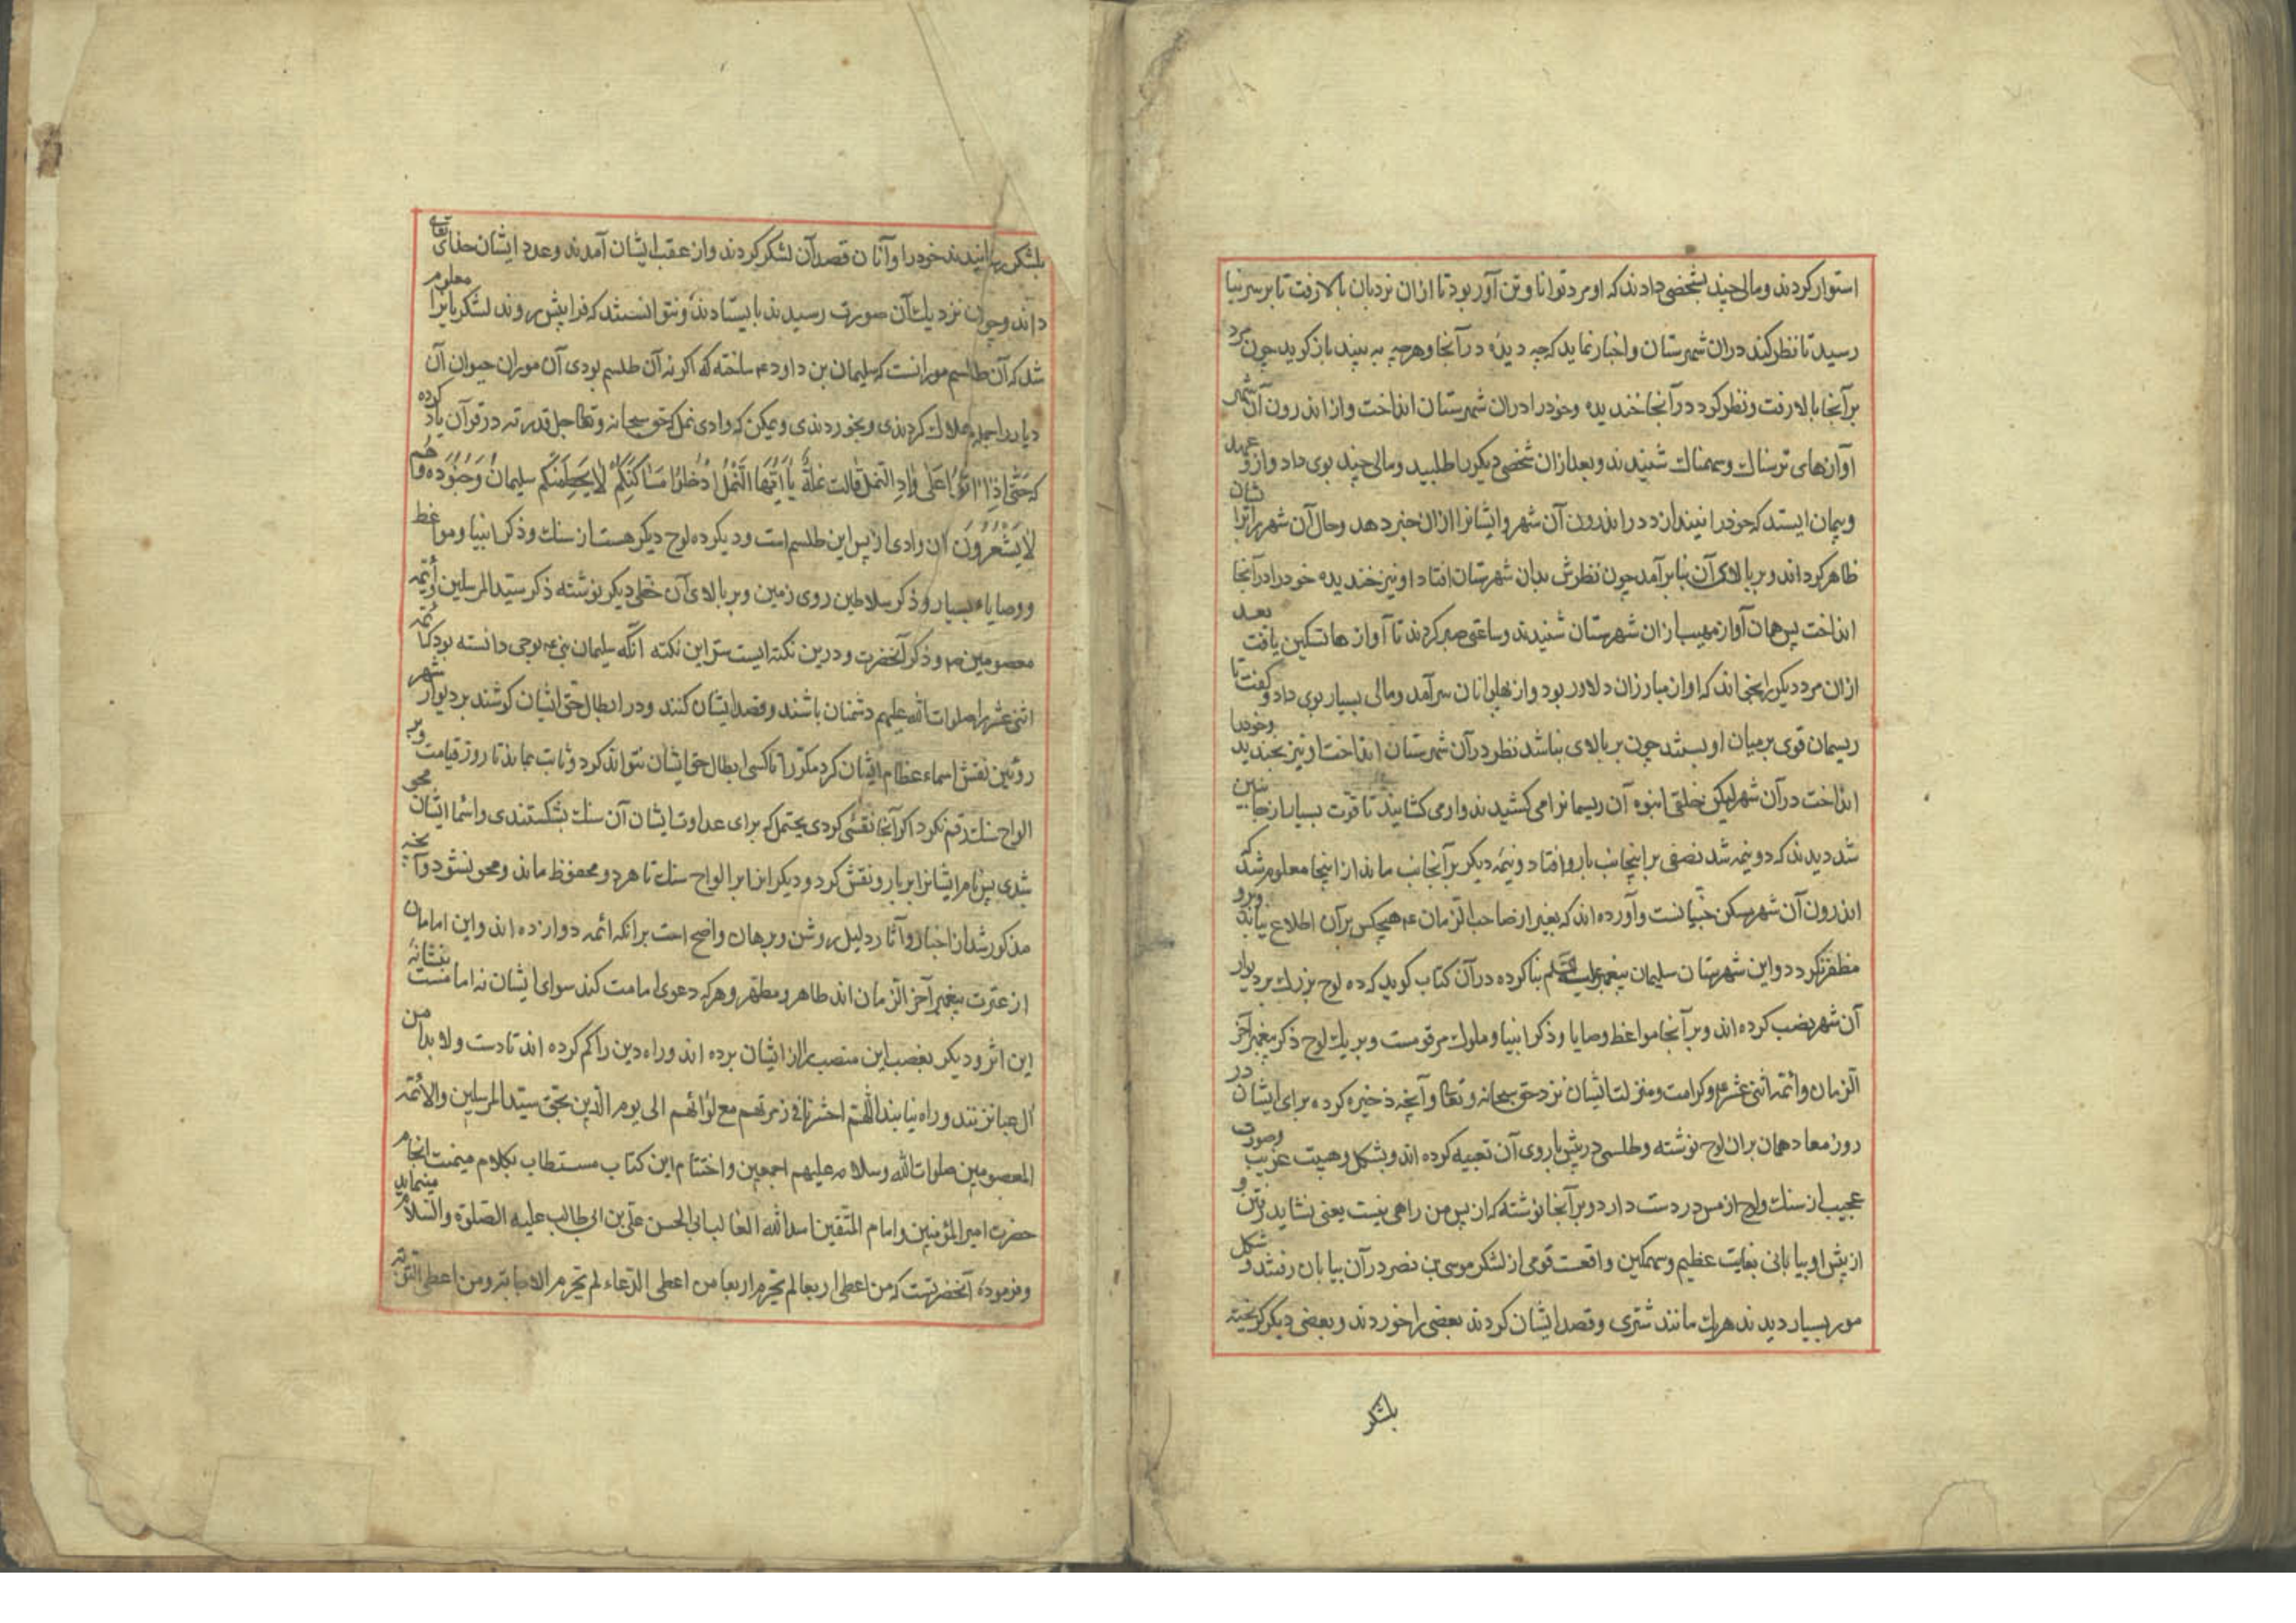 استوار کردند ومالی چند بشخصی دادند که او مرد توانا وتن آور بود تا ازان نردبان بالا رفت تا بر سر بنا
رسید تا نظر کند دران شهرستان واخبار نماید که چه دیده در آنجا وهرچه به بیند باز کوید چون مرد
بر آنجا بالا رفت ونظر کرد در آنجا خندیده وخود را دران شهرستان انداخت واز اندرون آن شهر
آوازهای ترسناک وسهمناک شنیدند وبعد ازان شخصی دیکر را طلبید ومالی چند بوی داد وازو عهد
وپیمان ایستد که خود را نیندازد در اندرون آن شهر وایشانرا ازان خبر دهد وحال آن شهر را برایشان
ظاهر کرداند وبر بالای آن بنا بر آمد چون نظرش بدان شهرستان افتاد او نیز خندیده خود را در آنجا
انداخت پس همان آواز مهیب ازان شهرستان شنیدند وساعتی صبر کردند تا آوازها تسکین یافت بعد
ازان مرد دیکر را که او از مبارزان دلاور بود واز پهلوانان سرآمد ومالی بسیار بوی داد وکفت تا
ریسمان قوی بر میان او بستند چون بر بالای بنا شد نظر در آن شهرستان انداخت او نیز بخندید وخود را
انداخت در آن شهر لیکن خلقی انبوه آن ریسمانرا می کشیدند واو را می کشانیدند تا قوت بسیار از جانبین
شد دیدند که دو نیمه شد نصفی بر اینجانب بارو افتاد ونیمه دیکر بر آنجانب ماند از اینجا معلوم شد که
اندرون آن شهر مسکن جنیانست وآورده اند که بغیر از صاحب الزمان ع هیچکس بر آن اطلاع نیابد وبرو
مظفر نکردد واین شهرستان سلیمان پیغمبر علیه السلم بنا کرده در آن کتاب کوید که ده لوح بزرک بر دیوار
آن شهر نصب کرده اند وبر آنجا مواعظ وصایا وذکر انبیا وملوک مرقومست وبر یک لوح ذکر پیغمبر آخر
الزمان وائمه اثنی عشر وکرامت ومنزلت ایشان نزد حق سبحانه وتعا وآنچه ذخیره کرده برای ایشان در
روز معاد همان بران لوح نوشته وطلسمی در پیش باروی آن تعبیه کرده اند وبشکل وهیت غریب وصورت
عجیب از سنک ولوح از مس در دست دارد وبر آنجا نوشته که از پس من راهی نیست یعنی نشاید رفتن و
از پیش او بیابانی بغایت عظیم وسهمکین واقعست قومی از لشکر موسی بن نصر در آن بیابان رفتند وشکل
مور بسیار دیدند هریک مانند شتری وقصد ایشان کردند بعضی را خوردند وبعضی دیکر کریخته
بلشکر
بلشکر رسانیدند خود را وآنان قصد آن لشکر کردند واز عقب ایشان آمدند وعدد ایشان خدای تعالی
داند وچون نزدیک آن صورت رسیدند بایستادند ونتوانستند که فرا پیش روند لشکریانرا معلوم
شد که آن طلسم مورانست که سلیمان بن داود ع ساخته که اکر نه آن طلسم بودی آن موران حیوان آن
دیار را جمله هلاک کردندی وبخوردندی ویمکن که وادی نمل که حق سبحانه وتعا جل قدرته در قرآن یاد کرده
که حَتّٰی اِذٰا اَتَوْا عَلٰی وٰادِ النَّمْلِ قٰالَت نَمْلَةٌ یٰا اَیُّهَا النَّمْلُ ادْخُلُوا مَسٰاکِنَکُمْ لٰا یَحْطِمَنَّکُم سلیمانُ وَجُنُودُه وَهُم
لٰا یَشْعُرُونَ آن وادی از پس این طلسم است ودیکر ده لوح دیکر هست از سنک وذکر انبیا ومواعظ
ووصایاء بسیار وذکر سلاطین روی زمین وبر بالای آن خطی دیکر نوشته ذکر سید المرسلین وأئمه
معصومین ع وذکر آنحضرت ودرین نکته ایست سر این نکته آنکه سلیمان نبی ع بوحی دانسته بود که ائمه
اثنی عشر را صلوات الله علیهم دشمنان باشند وقصد ایشان کنند ودر ابطال حق ایشان کوشند بر دیوار شهر
روئین نقش اسماء عظام ایشان کرد مکرر تا کسی ابطال حق ایشان نتواند کرد وثابت بماند تا روز قیامت وبر
الواح سنک رقم نکرد اکر آنجا نقش کردی یحتمل که برای عداوت ایشان آن سنک بشکستندی واسماء ایشان محو
شدی پس نام ایشانرا بر بارو نقش کرد ودیکرانرا بر الواح سنک تا هر دو محفوظ ماند ومحو نشود وآنچه
مذکور شد از اخبار وآثار دلیل روشن وبرهان واضح است بر آنکه ائمه دوازده اند واین امامان
از عترت پیغمبر آخر الزمان اند طاهر ومطهر وهرکه دعوی امامت کند سوای ایشان نه امامست
این اثر ودیکر بغصب این منصب را از ایشان برده اند وراه دین را کم کرده اند تا دست ولا بدامن
آل عبا نزنند وراه نیابند اللهم احشرنا فی زمرتهم مع لوائهم الی یوم الدین بحق سید المرسلین والأئمه
المعصومین صلوات الله وسلامه علیهم اجمعین واختتام این کتاب مستطاب بکلام میمنت انجام
حضرت امیر المؤمنین وامام المتقین اسد الله الغالب ابی الحسن علی بن ابی طالب علیه الصلوة والسلام مینماید
وفرموده آنحضرتست که من اعطی اربعا لم یحرم اربعا من اعطی الدعاء لم یحرم الاجابة ومن اعطی التوبة